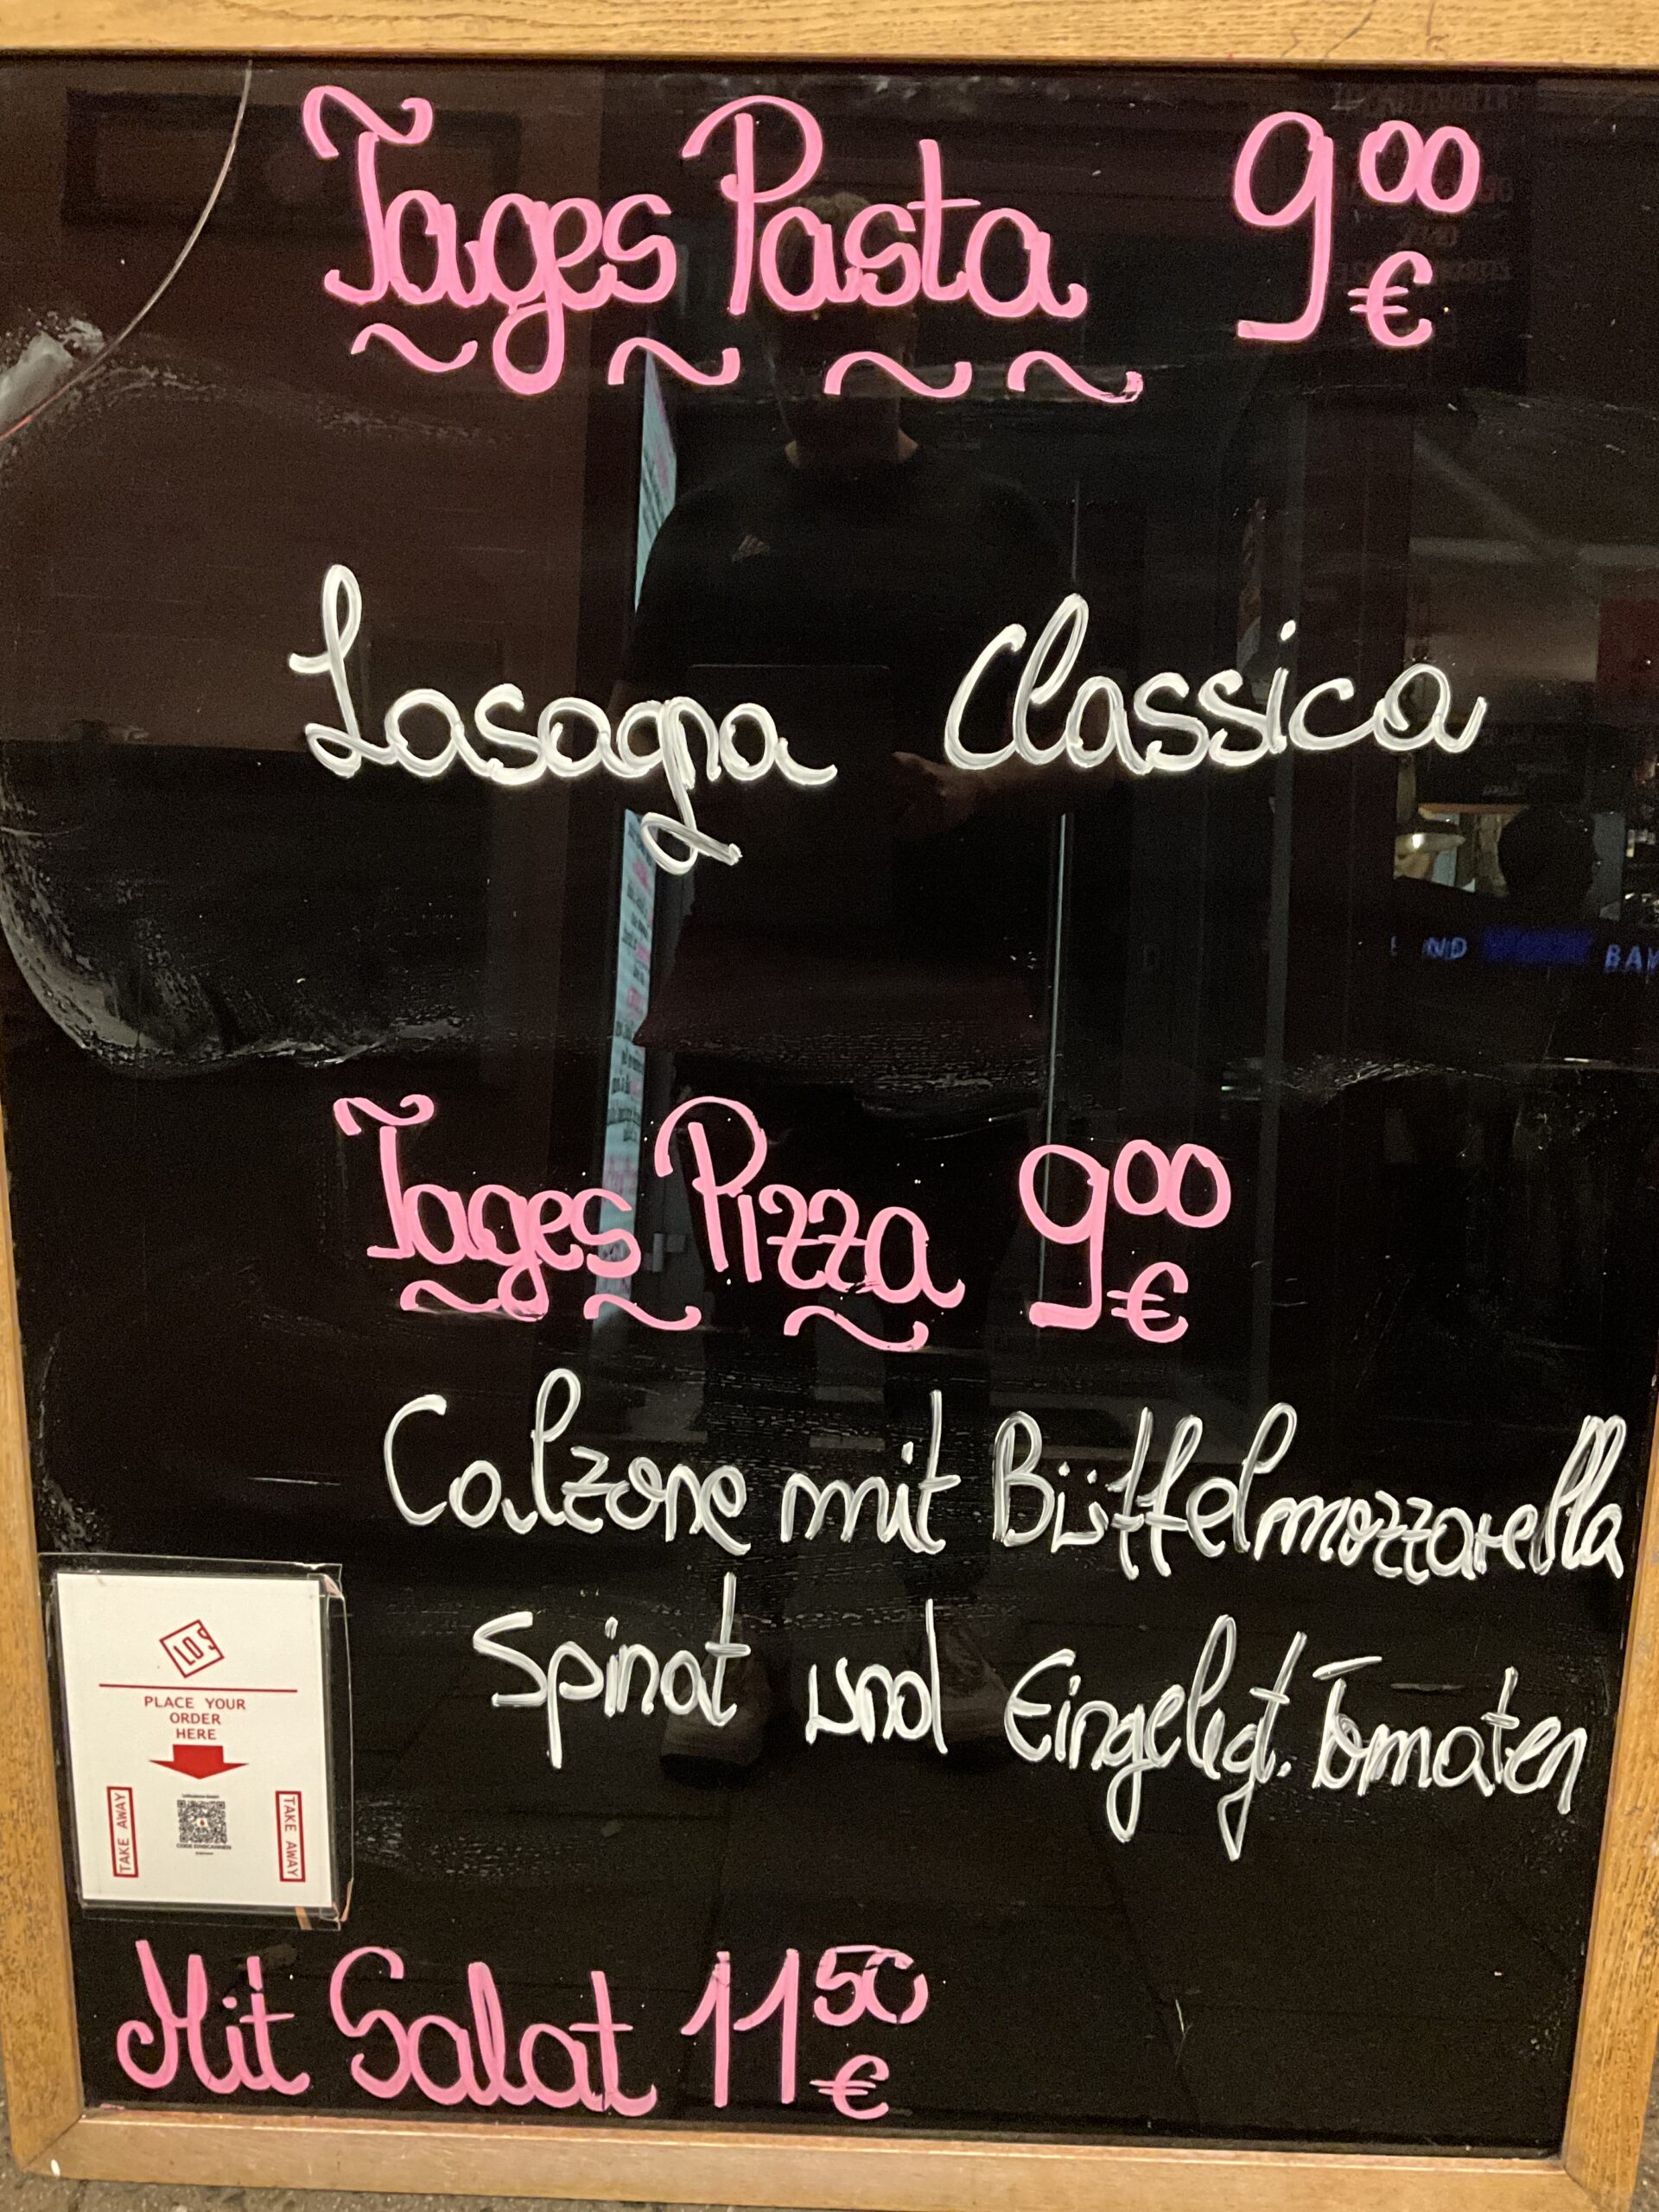 Tages Pasta 9,00 €
Lasagna Classica
Tages Pizza 9,00 €
Calzone mit Büffelmozzarella
Spinat und Eingelegt. Tomaten
LOS
PLACE YOUR
ORDER
HERE
TAKE AWAY
CODE EINSCANNEN
TAKE AWAY
Mit Salat 11 50 €